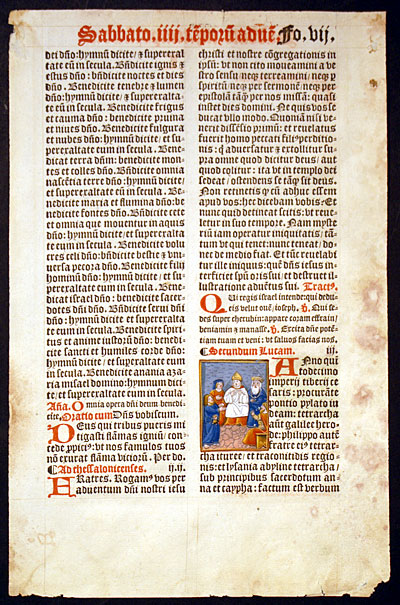 Sabbato.iiij.tẽporũ aduẽt Fo.vij.
dei dño: hymnũ dicite / ⁊ superexal
tate eũ in secula. Bñdicite ignis ⁊
estus dño: bñdicite noctes et dies
dño. Benedicite tenebre ⁊ lumen
dño: hymnũ dicite / ⁊ superexalta
te eũ in secula. Bñdicite frigus
et cauma dño: benedicite pruina
et niues dño. Benedicite fulgura
et nubes dño: hymnũ dicite / et su
perexaltate eum in secula. Bene
dicat terra dñm: benedicite mon
tes et colles dño. Bñdicite omnia
nascẽtia terre dño: hymnũ dicite /
et superexaltate eũ in secula. Be
nedicite maria et flumina dño: be
nedicite fontes dño. Bñdicite cete
et omnia que mouentur in aquis
dño: hymnũ dicite / et superexalta
te eũ in secula. Benedicite volu
cres celi dño: bñdicite bestie ⁊ vni
uersa pecora dño. Benedicite filij
hominũ dño: hymnũ dicite / et su
perexaltate eum in secula. Bene
dicat israel dño: benedicite sacer
dotes dñi dño. Bñdicite serui dñi
dño: hymnũ dicite / et superexalta
te eum in secula. Benedicite spiri
tus et anime iustoꝝ dño: benedi
cite sancti et humiles corde dño:
hymnũ dicite / et superexaltate eum
in secula. Benedicite anania aza
ria misael domino: hymnum dicite /
et superexaltate eum in secula.
Aña. Omnia opera dñi deum benedi-
cite. Oratio cum Dñs vobiscum.
DEus qui tribus pueris mi
tigasti flãmas igniũ / con-
cede propici⁹: vt nos famulos tuos
nõ exurat flãma vitiorũ. Per do.
Ad thessalonicenses. ij.ij.
FRatres. Rogam⁹ vos per
aduentum dñi nostri iesu
christi et nostre cõgregationis in
ipsũ: vt non cito moueamini a ve
stro sensu / neqꝫ terreamini / neqꝫ per
spiritũ neqꝫ per sermonẽ / neqꝫ per
epistolã tãqꝫ per nos missã: quasi
instet dies domini. Ne quis vos se
ducat vllo modo. Quoniã nisi ve
nerit discẽsio primũ: et reuelatus
fuerit homo peccati fili⁹ perditio-
nis: qui aduersatur ⁊ extollitur su
pra omne quod dicitur deus / aut
quod colitur: ita vt in templo dei
sedeat / ostendens se tãqꝫ sit deus.
Non retinetis qꝫ cũ adhuc essem
apud vos: hec dicebam vobis: Et
nunc quid detineat scitis: vt reue
letur in suo tempore. Nam myste
riũ iam operatur iniquitatis: tã-
tum vt qui tenet: nunc teneat / do-
nec de medio fiat. Et tũc reuelabi
tur ille iniquus: quẽ dñs iesus in
terficiet spũ oris sui: et destruet il-
lustratione aduẽtus sui. Tract⁹.
QUi regis israel intende: qui dedu-
cis velut ouẽ / ioseph. ℣. Qui se-
des super cherubin: appare coram effraim /
beniamin ⁊ manasse. ℣. Excita dñe potẽ-
tiam tuam et veni: vt saluos facias nos.
Secundum Lucam. iij.
ANno qui
todecimo
imperij tiberij ce
saris: procurãte
pontio pylato iu
deam: tetrarcha
aũt galilee hero-
de: philippo autẽ
fratre ei⁹ tetrar-
cha ituree / et traconitidis regio
nis: et lysania abyline tetrarcha /
sub principibus sacerdotum an-
na et caypha: factum est verbum